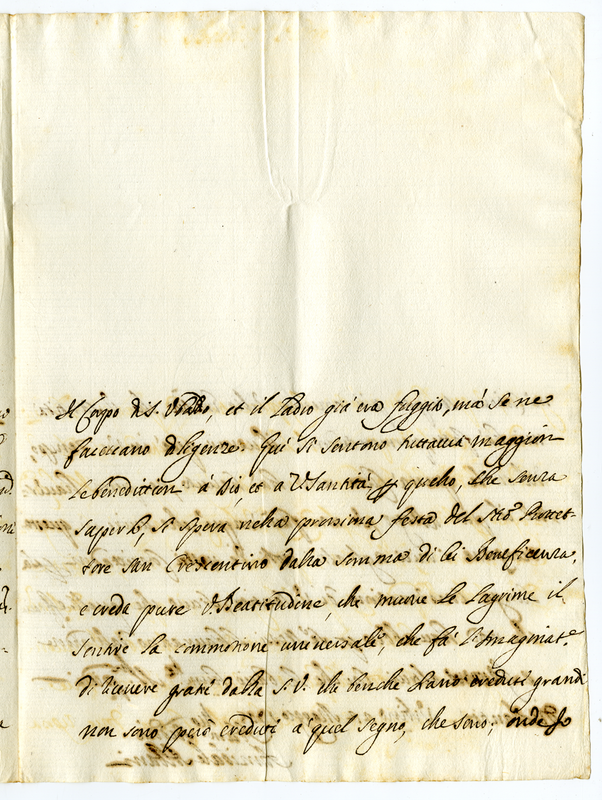 il Corpo di S. Ubaldo, et il Ladro già era fuggito, mà se ne
facevano diligenze. Quì si sentono tuttavia maggiori
le benedittion à Dio, et a V. Santità quello, che senza
saperlo, si spera nella prossima festa del Sto. Protet-
tore San Crescentino dalla somma di lei Beneficenza,
e creda pure V. Beatitudine, che muove le Lagrime il
sentire la commotione universale, che fà l'imaginat.e
di ricevere gratie dalla S. V. che benche siano creduti grandi
non sono però creduti à quel segno, che sono; onde Io